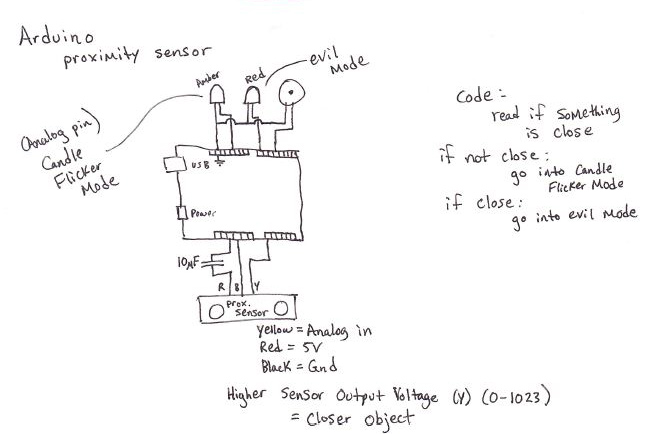 Arduino
proximity sensor
evil
Mode
Amber
Red
(Analog pin)
Candle
Flicker
Mode
Code:
read if something
is close
if not close:
go into Candle
Flicker Mode
if close:
go into evil mode
USB
Power
10µF
R B Y
Prox.
Sensor
Yellow = Analog in
Red = 5V
Black = Gnd
Higher Sensor Output Voltage (V) (0-1023)
= Closer object